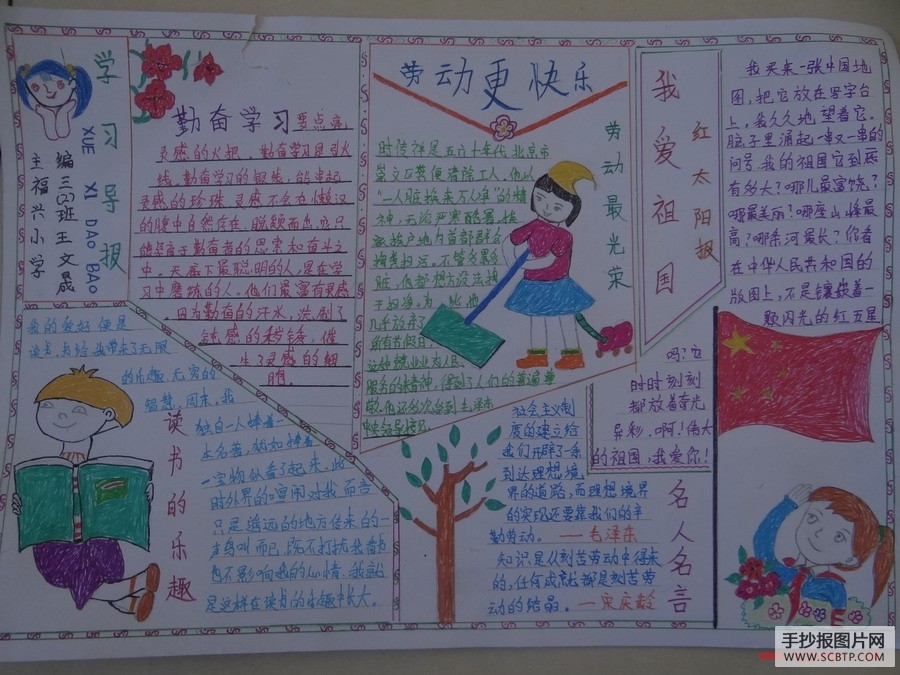 学习导报
XUE XI DAO BAO
主编 三(2)班 王文晟
福兴小学
勤奋学习
要点亮
灵感的火把。勤奋学习是引火
线。勤奋学习的银线，能串起
灵感的珍珠。灵感不会在懒汉
的腹中自然存在，脱颖而出。它只
能坚守于勤奋者的思索和奋斗之
中。天底下最聪明的人，是在学
习中磨练的人。他们最富有灵感
因为勤奋的汗水，浇制了
钝感的
生了灵感的翅
膀。
劳动更快乐
劳动最光荣
时传祥是五六十年代北京市
崇文区粪便清除工人，他以
"一人脏换来万人净"的精
神，无论严寒酷暑，挨
家挨户地为首都群众
掏粪扫污。不管多累多
脏，他都想方设法掏
干扫净。为
几乎放弃了
所有节假日。
这种兢兢业业为人民
服务的精神，得到了人们的普遍尊
敬。他还多次受到毛泽东
中央领导接见
我爱祖国
红太阳报
我买来一张中国地
图，把它放在写字台
上，我久久地望着它。
脑子里涌起一串又一串的
问号：我的祖国它到底
有多大？哪儿最富饶？
哪最美丽？哪座山峰最
高？哪条河最长？你看
在中华人民共和国的
版图上，不是镶嵌着一
颗闪光的红五星
吗？它
时时刻刻
都放着奇光
异彩。啊！伟大
的祖国，我爱你！
读书的乐趣
我的爱好便是
读书，书给我带来了无限
的乐趣，无穷的
智慧。周末，我
独自一人捧着一
本名著，就如捧着
一宝物似看了起来。此
时外界的喧闹对我而言
只是遥远的地方传来的一
声鸟叫而已，既不打扰我看书
也不影响我的心情。我就
是这样在读书的乐趣中长大。
名人名言
社会主义制
度的建立给
我们开辟了一条
到达理想境
界的道路，而理想境界
的实现还要靠我们的辛
勤劳动。——毛泽东
知识是从刻苦劳动中得来
的，任何成就都是刻苦劳
动的结晶。——宋庆龄
手抄报图片网
WWW.SCBTP.COM